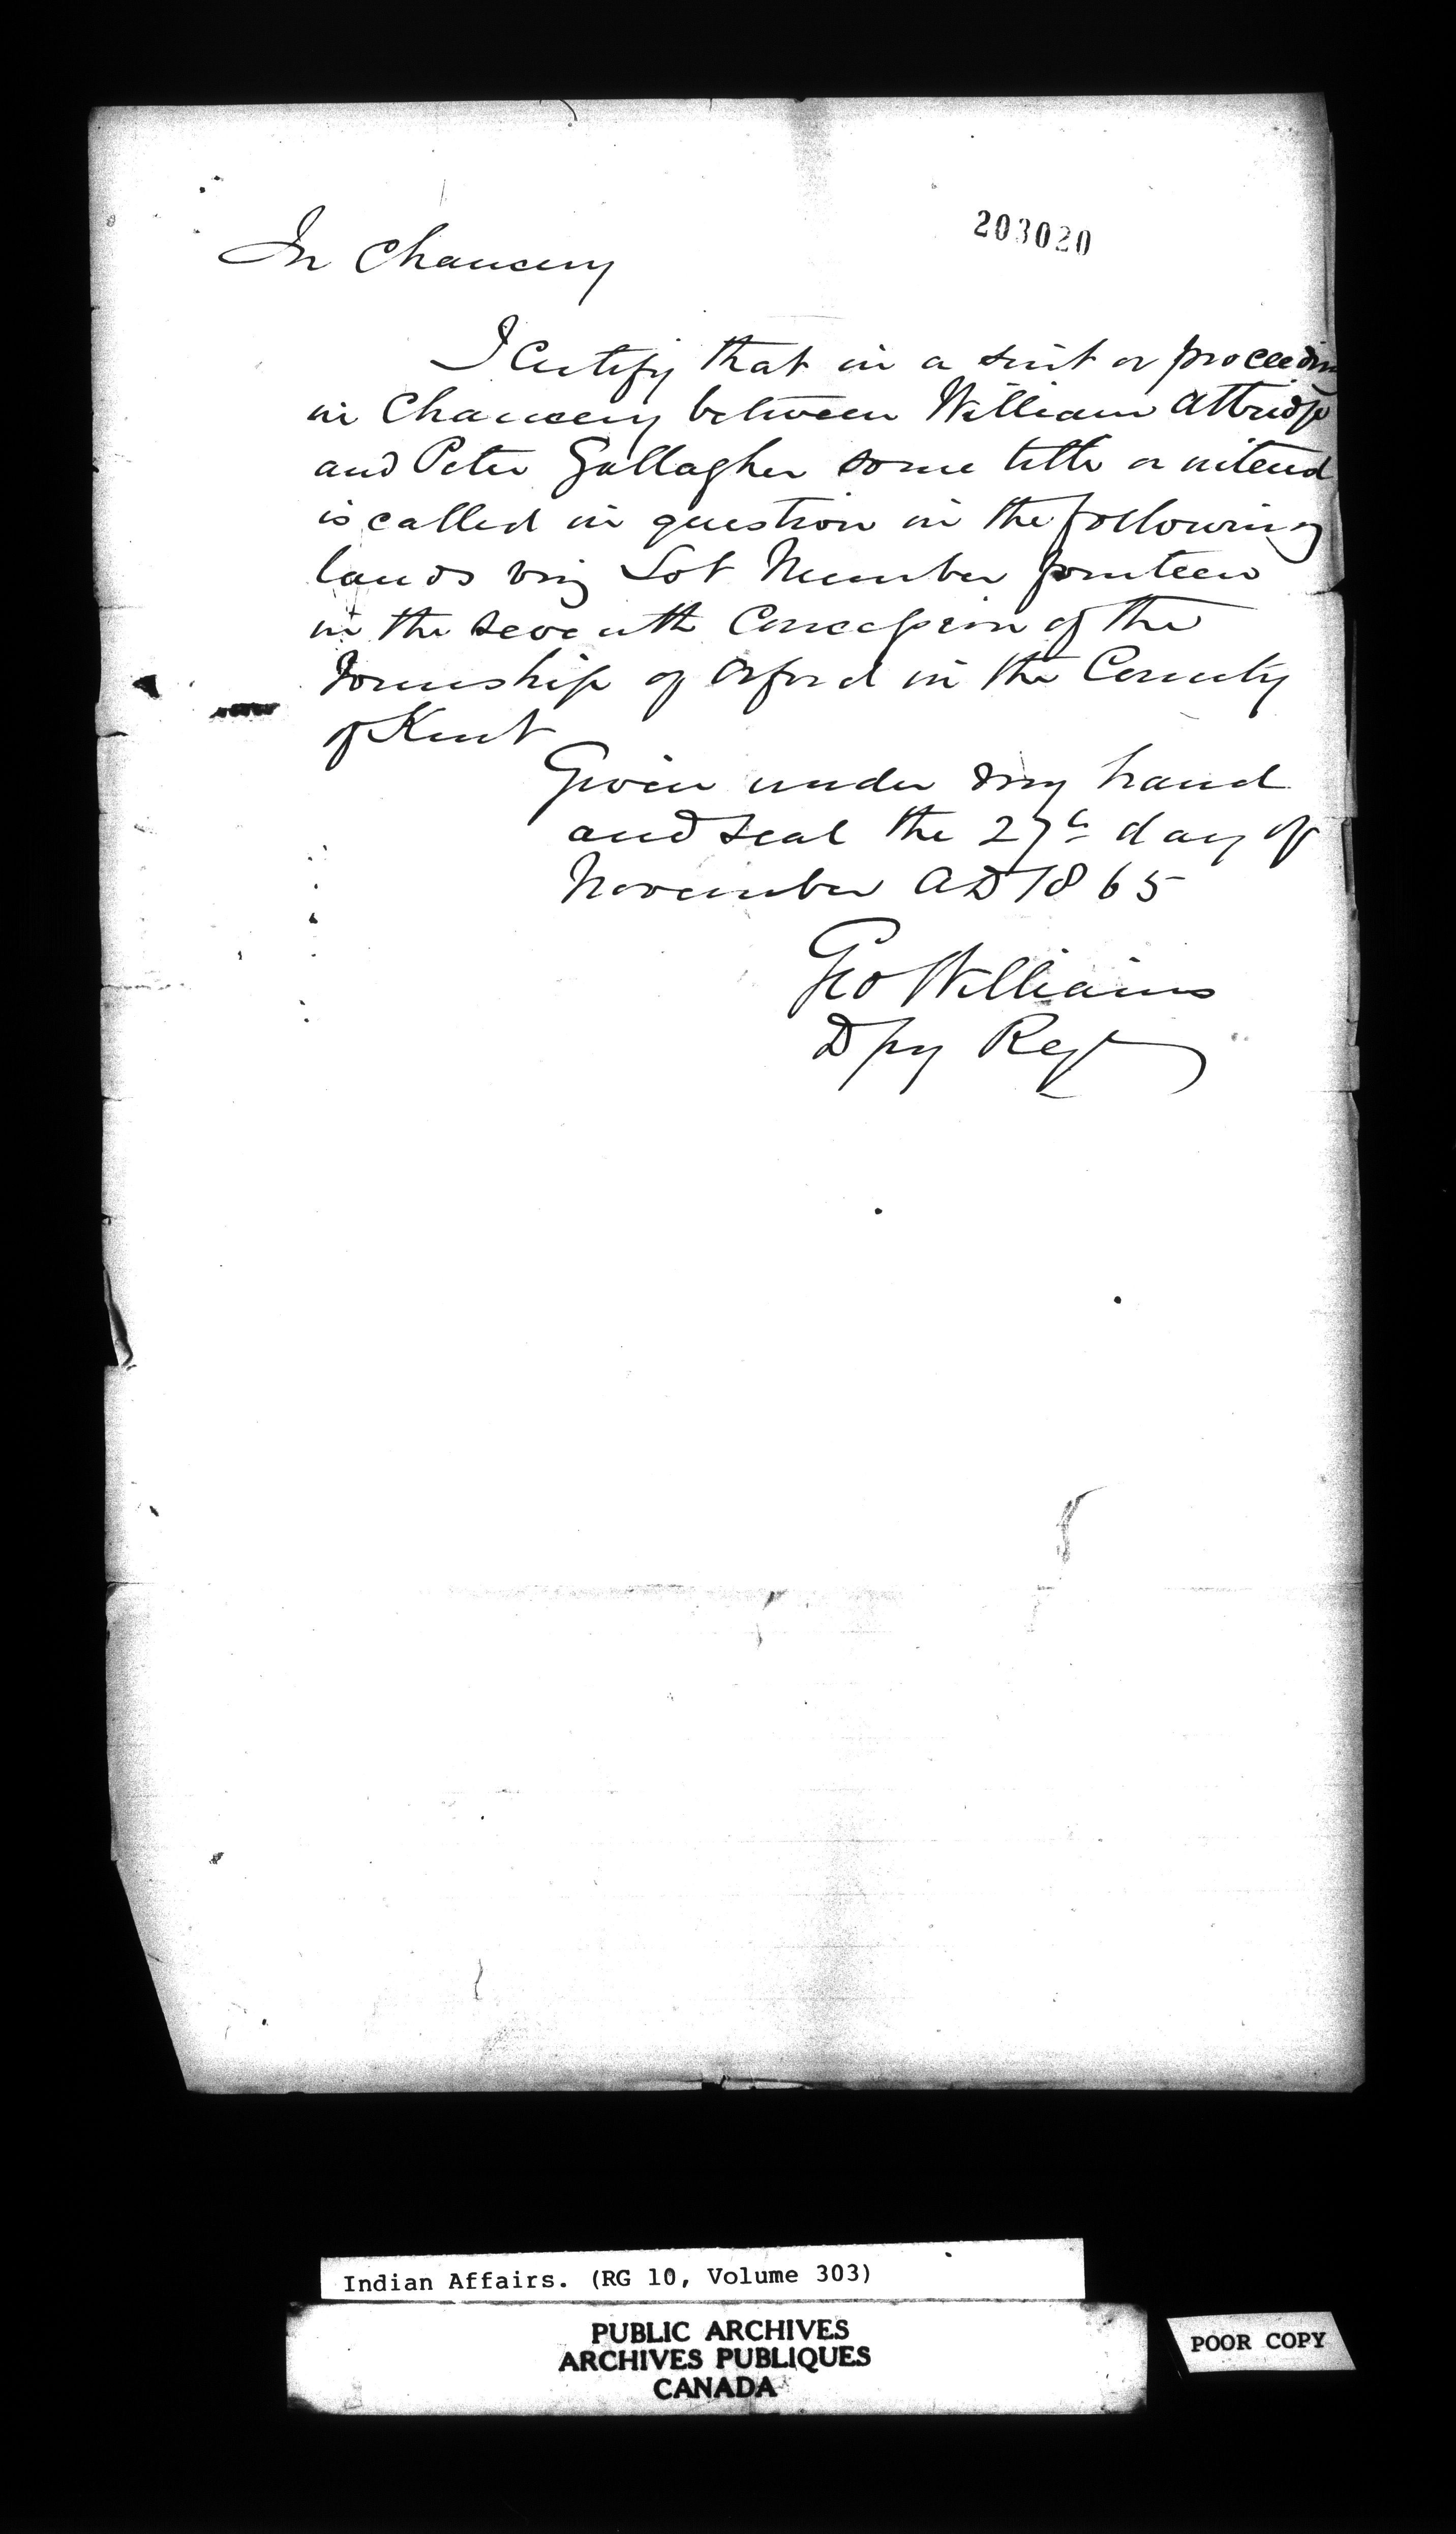 203020
In Chancery
I Certify that in a suit or proceeding
in Chancery between William Attridge
and Peter Gallagher some title or interest
is called in question in the following
lands viz Lot Number fourteen
in the seventh Concession of the
Township of Orford in the County
of Kent
Given under my hand
and seal the 27th day of
November AD 1865
Geo Williams
Dpy Regr
Indian Affairs. (RG 10, Volume 303)
PUBLIC ARCHIVES
ARCHIVES PUBLIQUES
CANADA
POOR COPY